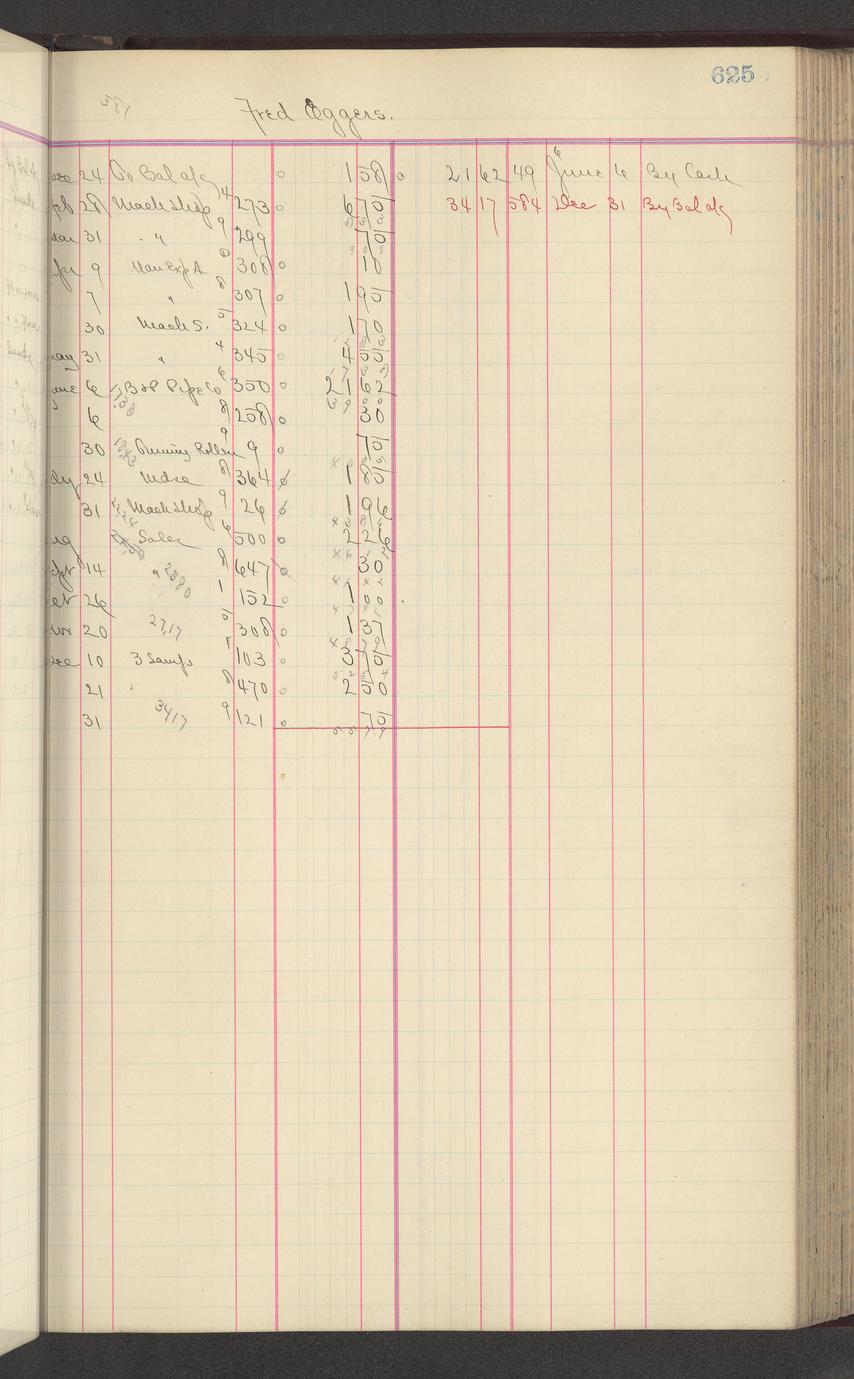 625
Fred Eggers.
Dec 24 To Bal a/c 1 58 21 62 49 June 6 By Cash
Feb 28 Mach Shop 4 273 6 75 34 17 584 Dec 31 By Bal a/c
Mar 31 " " 9 299 75
Apr 9 Man Exp A 308 10
7 " 8 307 1 95
30 Mach S. 5 324 1 70
May 31 " 4 345 4 55
June 6 B & P Pipe Co 6 350 21 62
6 8 258 30
30 Running Roller 9 9 75
July 24 Mdse 8 364 1 85
31 Mach Shop 9 26 1 96
Aug Sales 6 500 2 26
Sept 14 " 8 647 30
Oct 26 1 152 1 00
Nov 20 27,17 5 308 1 37
Dec 10 3 Lamps 103 3 75
21 8 470 2 50
31 34,17 9 121 75
55 79